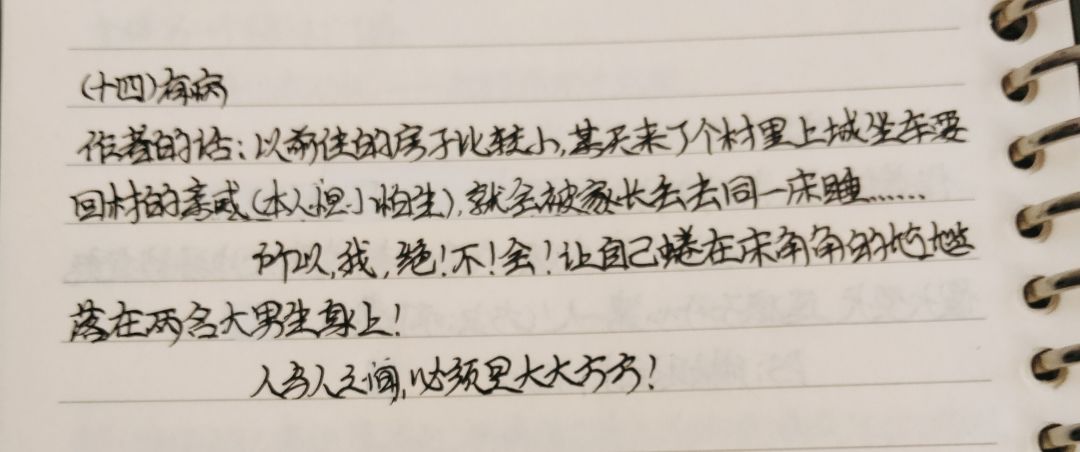 (十四)有病
作者的话:以前住的房子比较小,某天来了个村里上城坐车要
回村的亲戚(本人胆小怕生),就会被家长丢去同一床睡……
所以,我,绝!不!会!让自己蜷在床角角的尴尬
落在两名大男生身上!
人与人之间,必须里大大方方!